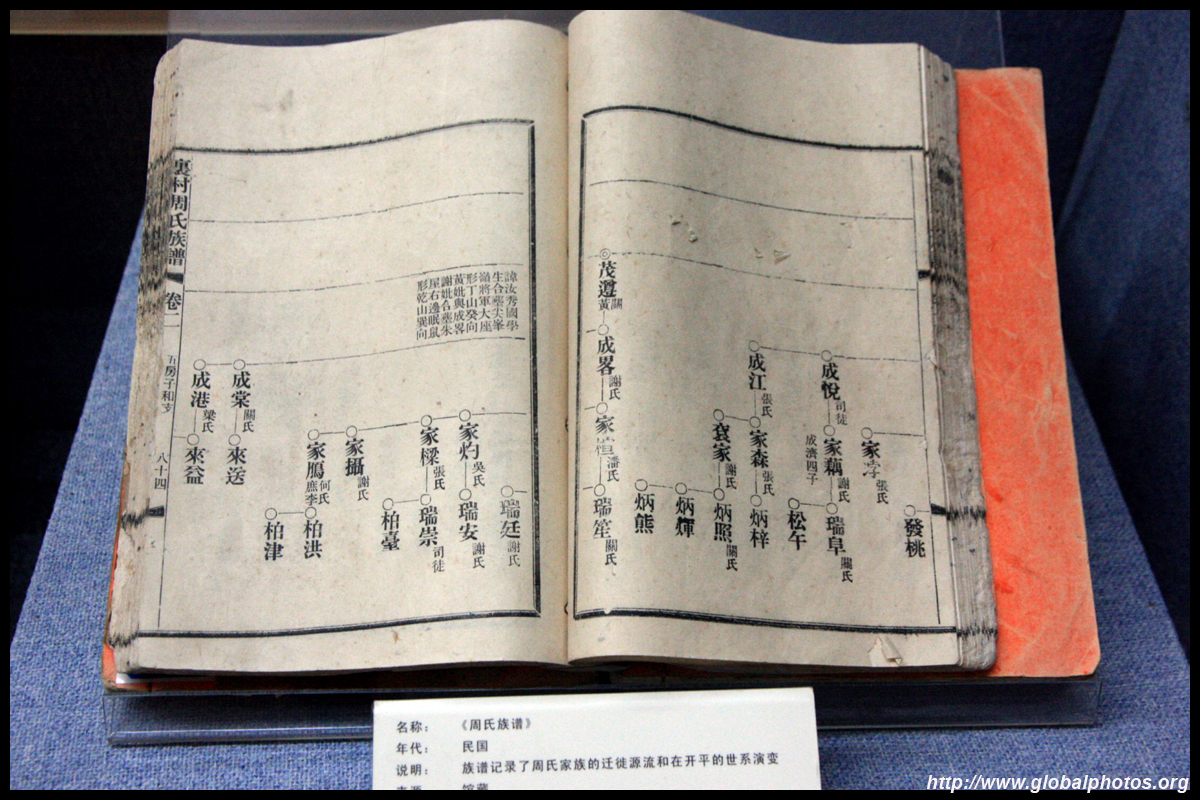 發桃
家
張氏
成悅
司徒
家藕
謝氏
瑞阜
關氏
成濟四子
松午
成江
張氏
家森
張氏
炳梓
家
謝氏
炳照
關氏
炳輝
炳熊
茂遵
關
黃
成畧
謝氏
家
潘氏
瑞笙
關氏
諱汝秀國學
生合葬尖峯
嶺將軍大座
形丁山癸向
黃妣與成畧
謝妣合葬朱
屋右邊眠鼠
形乾山巽向
瑞廷
謝氏
家灼
吳氏
瑞安
謝氏
家樑
張氏
瑞崇
司徒
柏臺
家攝
謝氏
家鴈
何氏
庶李
柏洪
柏津
成棠
關氏
來送
成港
梁氏
來益
裏村周氏族譜
卷二
五房子和支
八十四
名称： 《周氏族谱》
年代： 民国
说明： 族谱记录了周氏家族的迁徙源流和在开平的世系演变
http://www.globalphotos.org